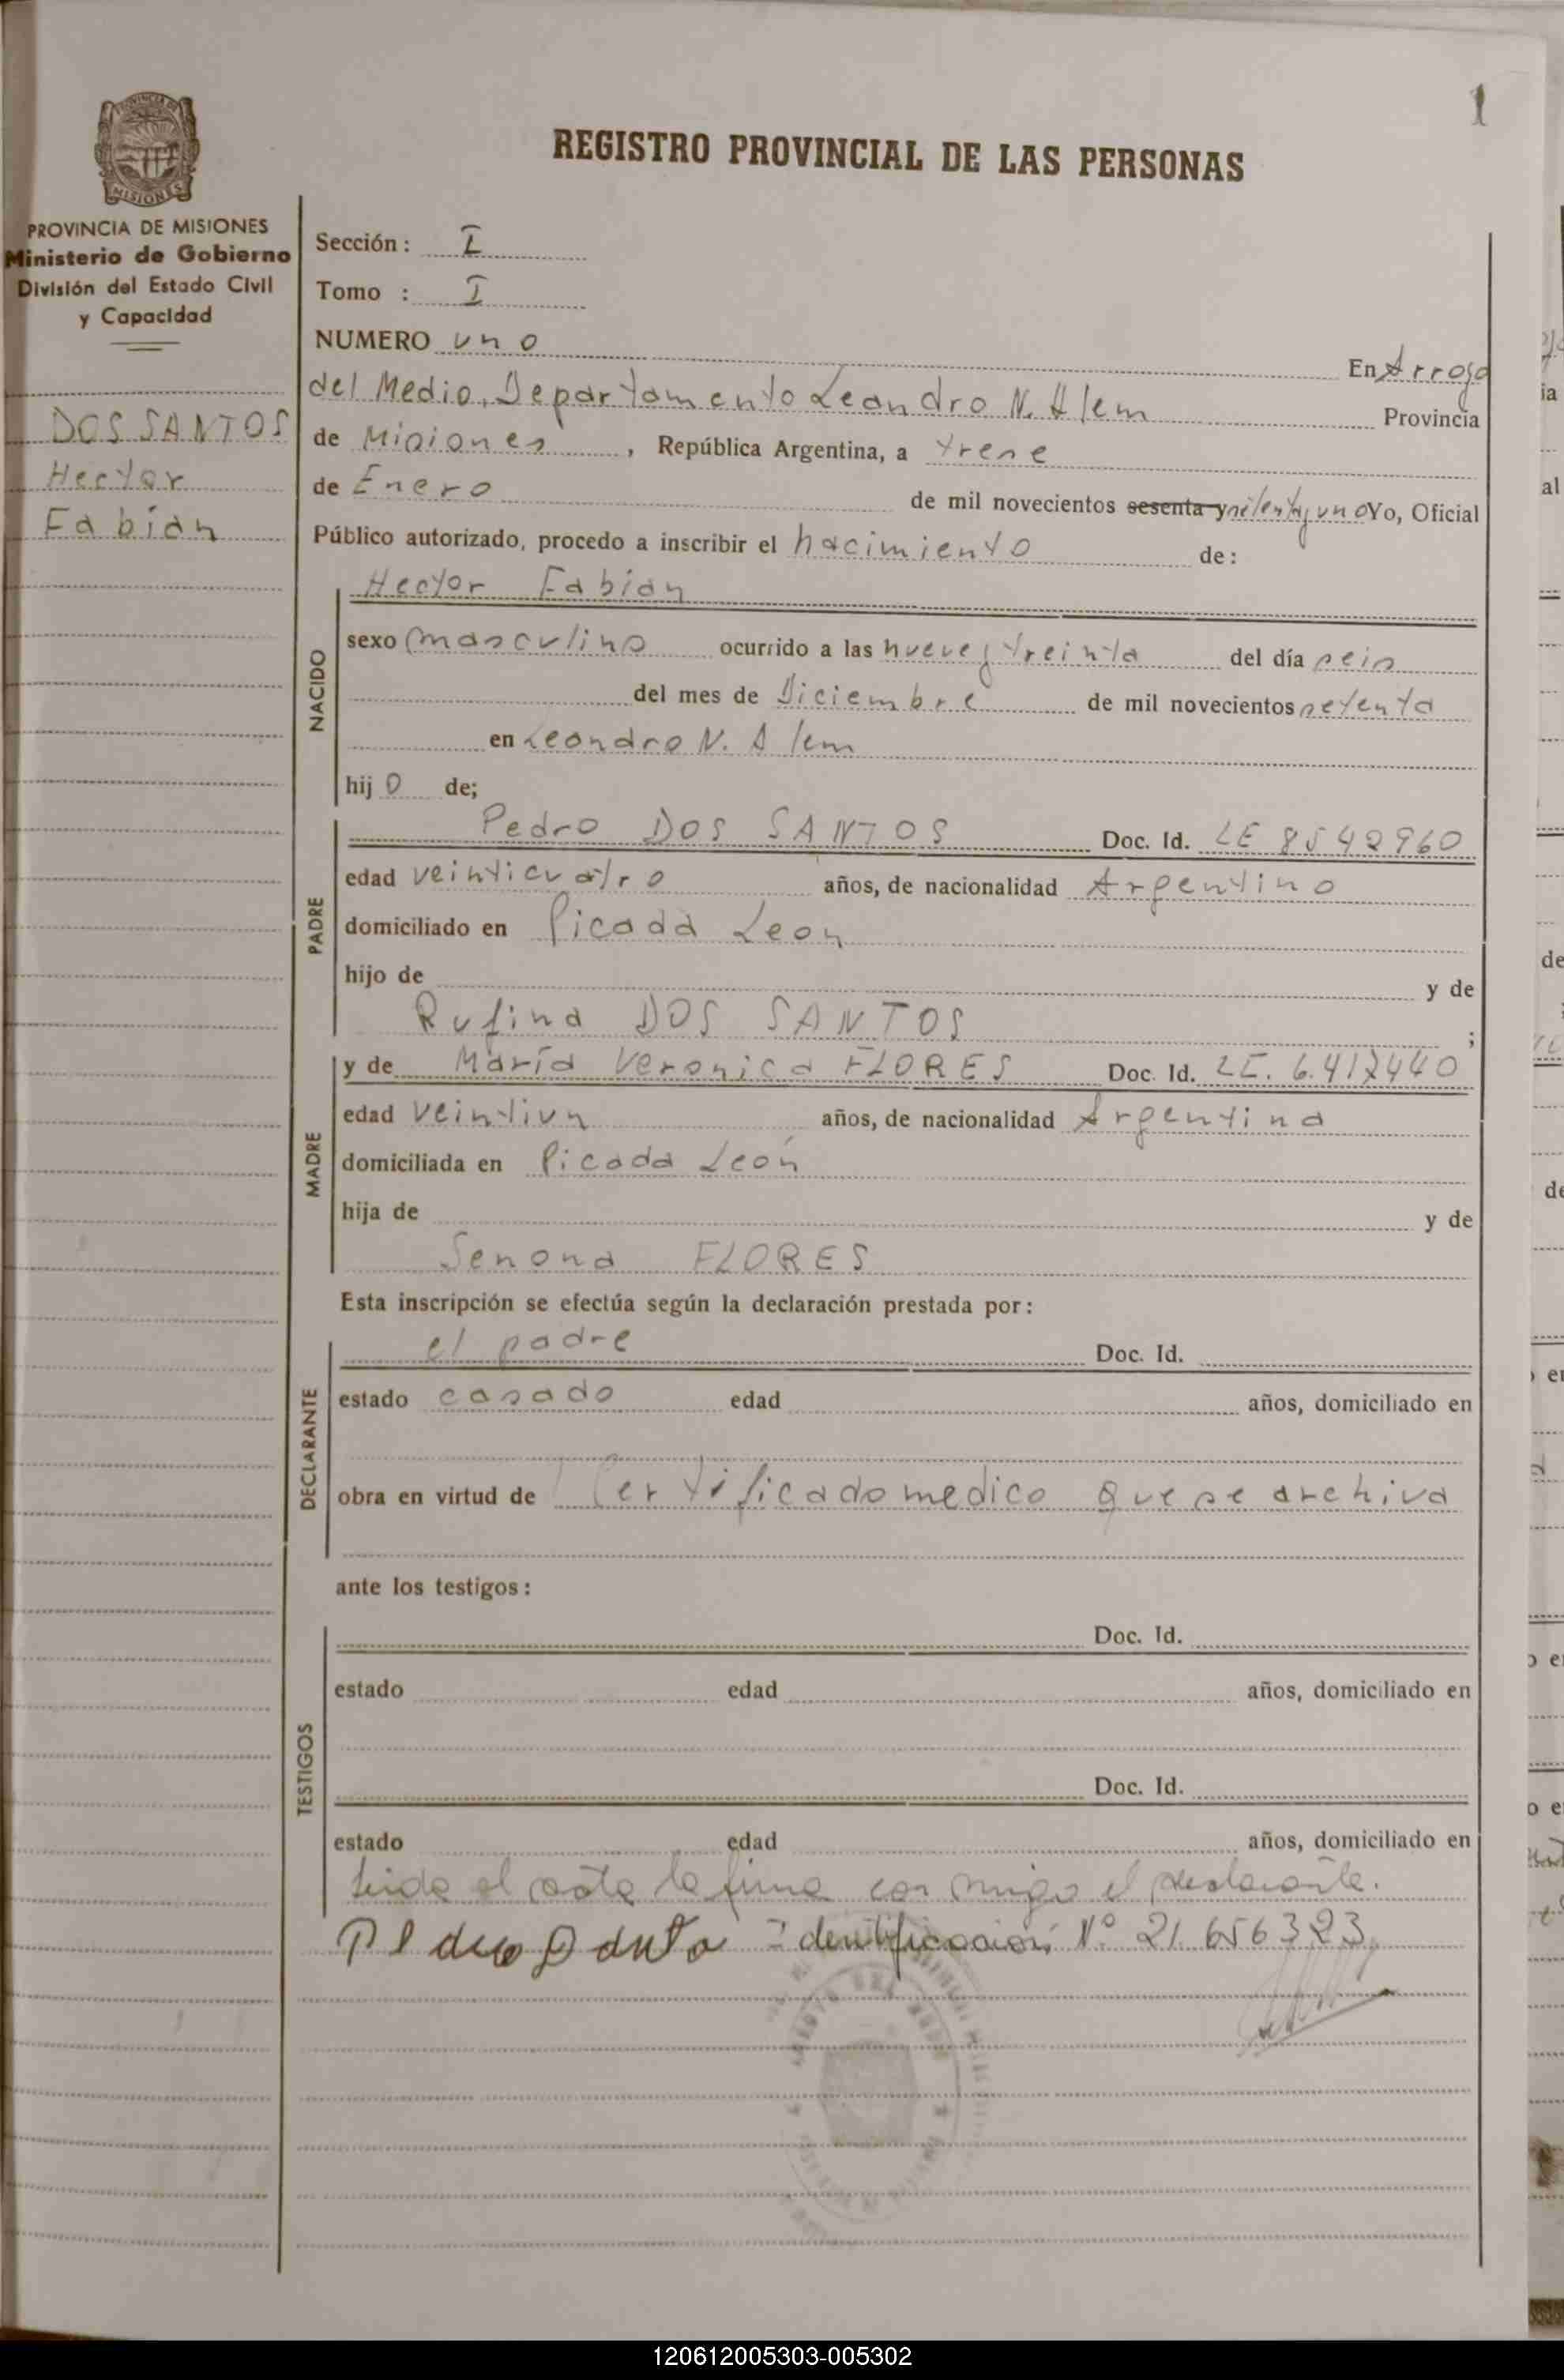 1
REGISTRO PROVINCIAL DE LAS PERSONAS
MISIONES
PROVINCIA DE MISIONES
Ministerio de Gobierno
División del Estado Civil
y Capacidad
DOS SANTOS
Hector
Fabián
Sección: I
Tomo : I
NUMERO uno
En Arroyo
del Medio, Departamento Leandro N. Alem Provincia
de Misiones, República Argentina, a trese
de Enero de mil novecientos sesenta y setenta y uno Yo, Oficial
Público autorizado, procedo a inscribir el nacimiento de:
Hector Fabian
NACIDO
sexo masculino ocurrido a las nueve y treinta del día seis
del mes de Diciembre de mil novecientos setenta
en Leandro N. Alem
hij o de;
PADRE
Pedro DOS SANTOS Doc. Id. LE 8542960
edad veinticuatro años, de nacionalidad Argentino
domiciliado en Picada Leon
hijo de y de
Rufina DOS SANTOS ;
MADRE
y de María Veronica FLORES Doc. Id. LE. 6.417440
edad veintiun años, de nacionalidad Argentina
domiciliada en Picada León
hija de y de
Senona FLORES
Esta inscripción se efectúa según la declaración prestada por:
DECLARANTE
el padre Doc. Id.
estado casado edad años, domiciliado en
obra en virtud de Certificado medico que se archiva
ante los testigos:
TESTIGOS
Doc. Id.
estado edad años, domiciliado en
Doc. Id.
estado edad años, domiciliado en
leida el acta la firma con migo el declarante.
Identificación Nº 21.656323
120612005303-005302